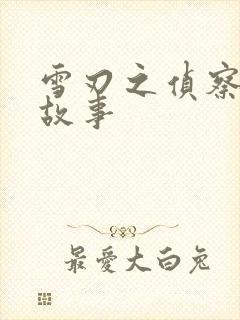 雪刃之偵察
故事
最愛大白兔